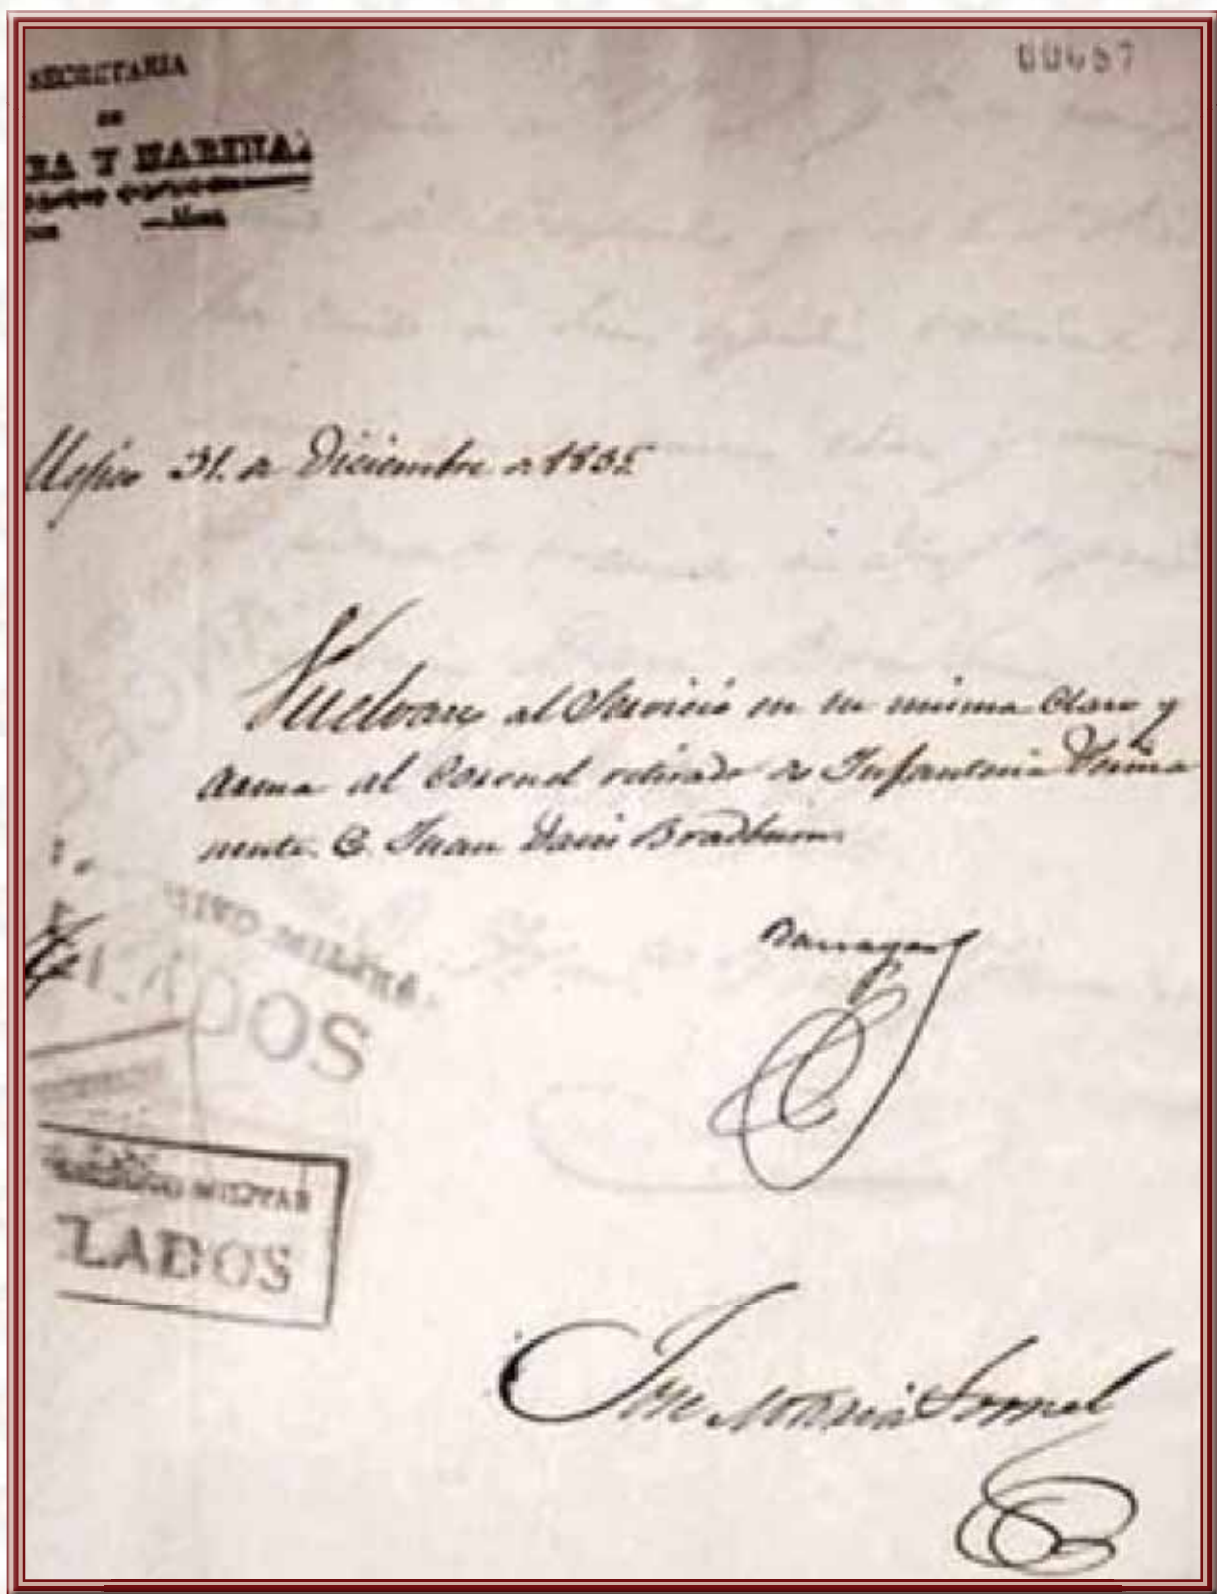 SECRETARIA
DE
RA Y MARINA.
00687
Mejico 31. de Diciembre de 1835
Vuelvase al Servicio en su misma Clase y
Arma al Coronel retirado de Infanteria Perma
nente. C. Juan Davis Bradburn.
Barragan
VO MILITAR
LADOS
MILITAR
LADOS
Jose Maria Tornel